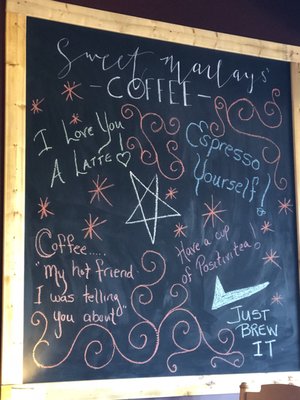 Sweet Marlays'
-COFFEE-
I Love You
A LATTE!
Espresso
Yourself!
Have a cup
of Positivitea!
Coffee.....
"My hot friend
I was telling
you about"
JUST
BREW
IT